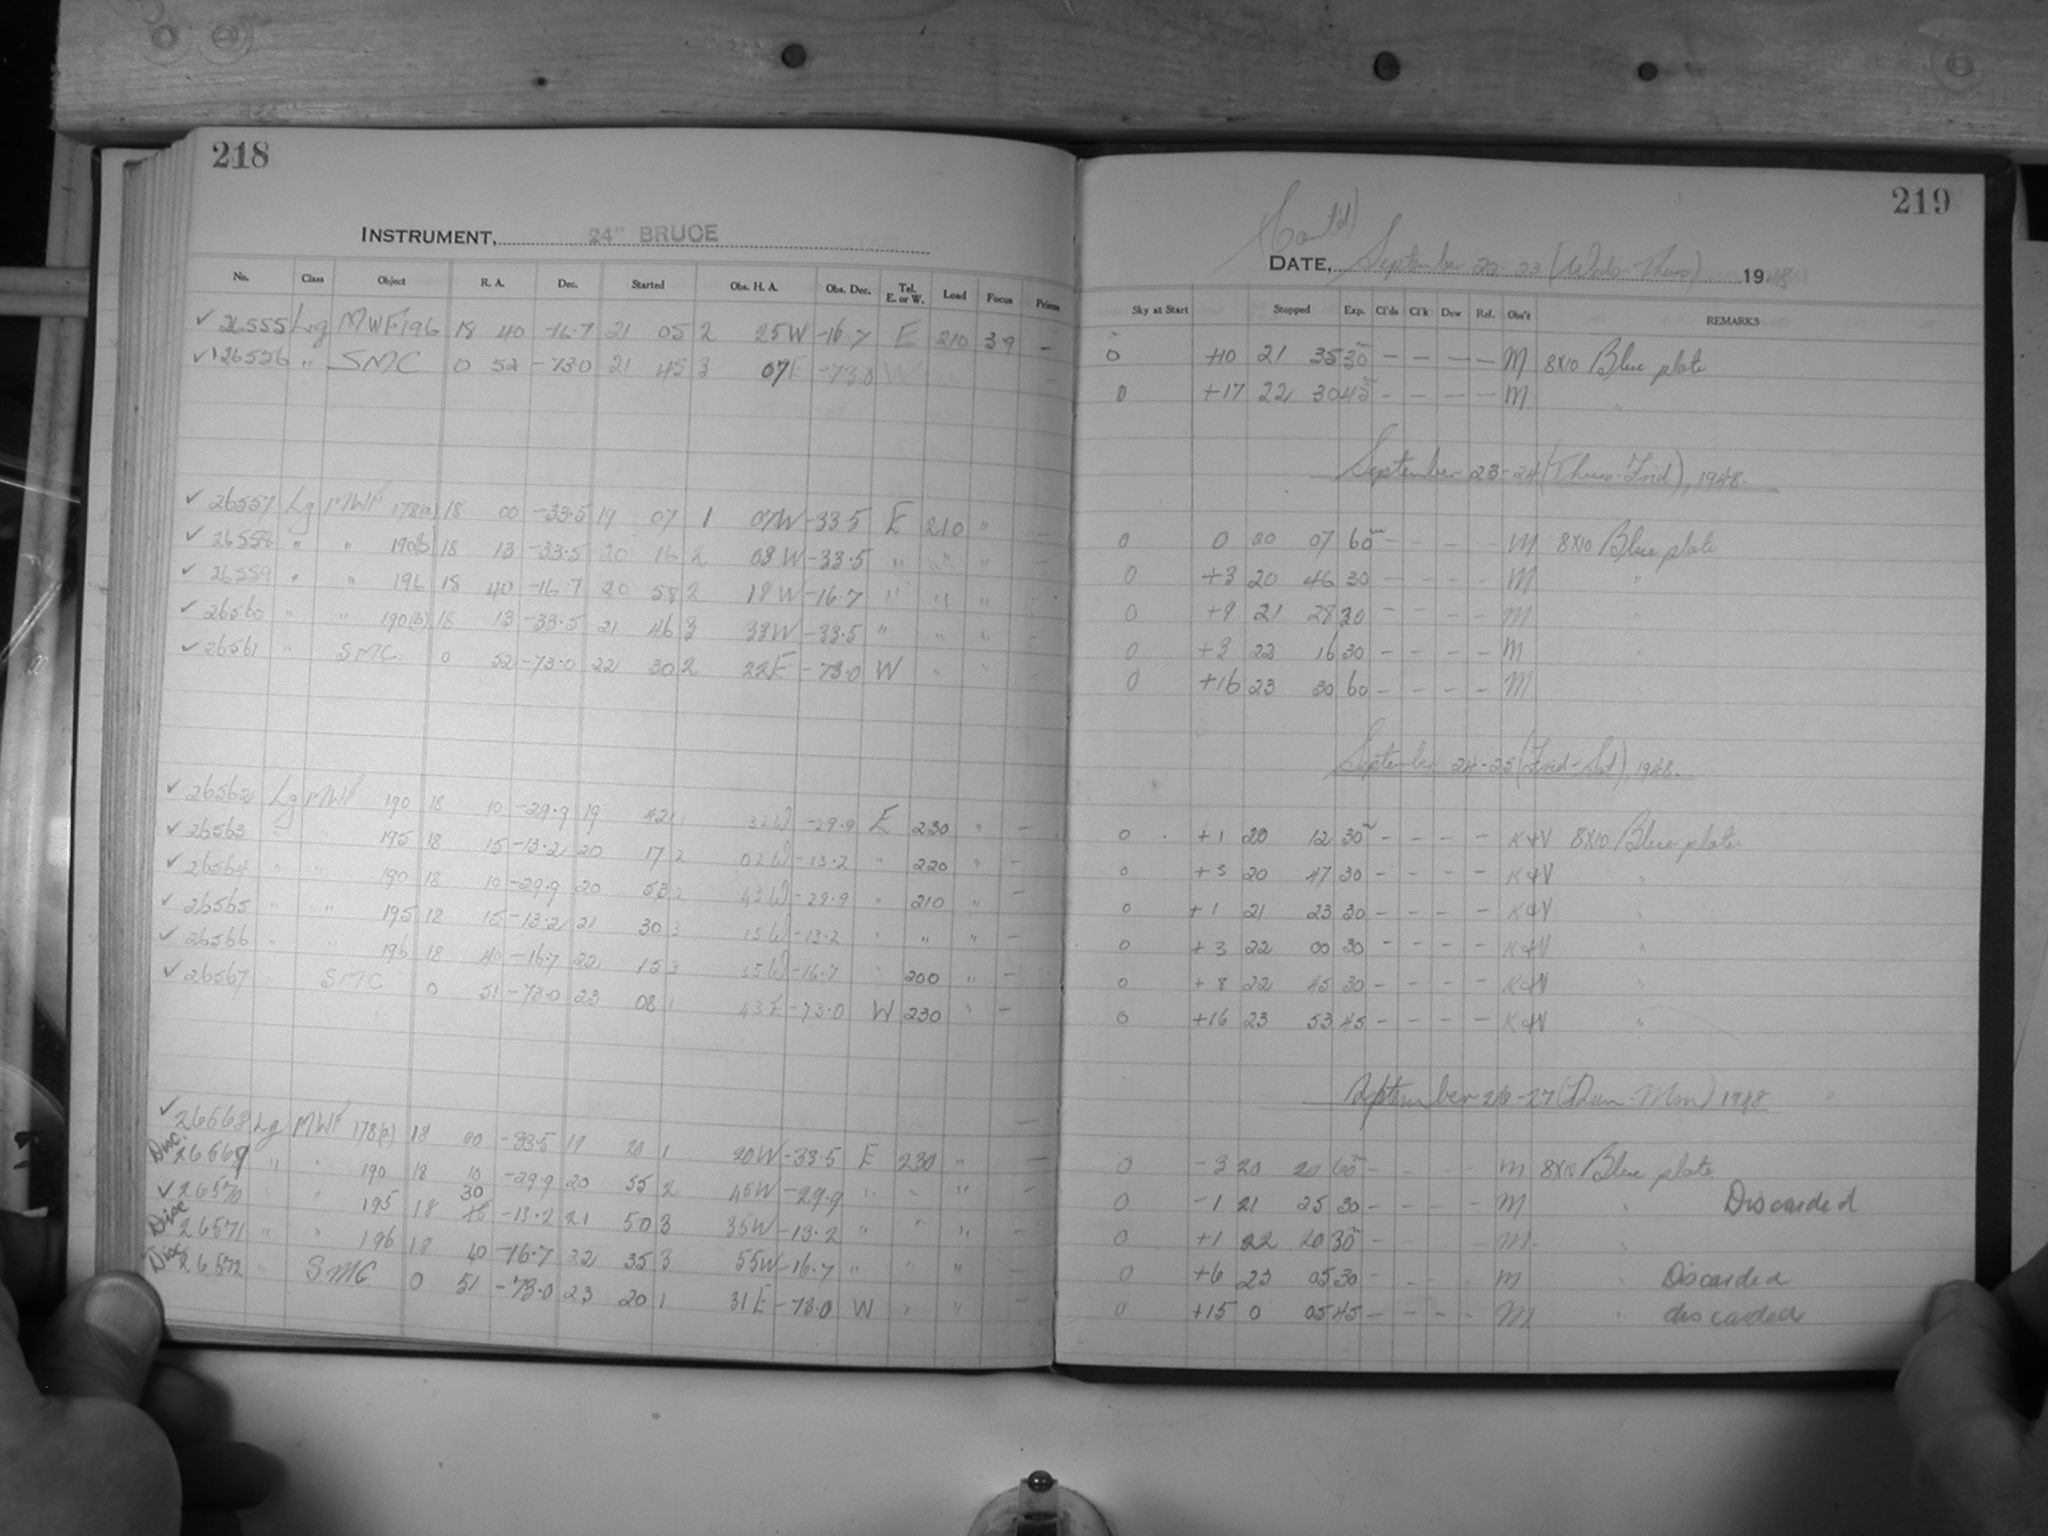 218
INSTRUMENT, 24" BRUCE
No. Class Object R. A. Dec. Started Obs. H. A. Obs. Dec. Tel. E. or W. Load Focus Prisms
✓ 26555 Lg MWF 196 18 40 -16.7 21 05 2 25W -16.7 E 210 3.9 –
✓ 26556 " SMC 0 52 -73.0 21 45 3 07E -73.0 W
✓ 26557 Lg MWF 178(a) 18 00 -33.5 19 07 1 07W -33.5 E 210 "
✓ 26558 " " 190(b) 18 13 -33.5 20 16 2 08W -33.5 " " "
✓ 26559 " " 196 18 40 -16.7 20 58 2 18W -16.7 " " "
✓ 26560 " " 190(b) 18 13 -33.5 21 46 3 33W -33.5 " " "
✓ 26561 " SMC 0 52 -73.0 22 30 2 22E -73.0 W " "
✓ 26562 Lg MWF 190 18 10 -29.9 19 42 1 32W -29.9 E 230 " –
✓ 26563 " " 195 18 15 -13.2 20 17 2 02W -13.2 " 220 " –
✓ 26564 " " 190 18 10 -29.9 20 53 2 43W -29.9 " 210 " –
✓ 26565 " " 195 18 15 -13.2 21 30 3 15W -13.2 " " " –
✓ 26566 " " 196 18 40 -16.7 22 15 3 35W -16.7 " 200 " –
✓ 26567 " SMC 0 51 -73.0 23 08 1 43E -73.0 W 230 " –
✓ 26568 Lg MWF 178(a) 18 00 -33.5 19 20 1 20W -33.5 E 230 " –
Disc. 26569 " " 190 18 10 -29.9 20 55 2 45W -29.9 " " " –
✓ 26570 " " 195 18 30 15 -13.2 21 50 3 35W -13.2 " " " –
Disc 26571 " " 196 18 40 -16.7 22 35 3 55W -16.7 " " " –
Disc 26572 " SMC 0 51 -73.0 23 20 1 31E -73.0 W " " –
219
(Cont'd)
DATE, September 22-23 (Weds-Thurs) 1948
Sky at Start Stopped Exp. Cl'ds Cl'k Dew Ref. Obs'r REMARKS
0 +10 21 35 30m – – – – M 8x10 Blue plate
0 +17 22 30 45m – – – – M "
September 23-24 (Thurs-Frid), 1948.
0 0 20 07 60m – – – – M 8x10 Blue plate
0 +3 20 46 30 – – – – M "
0 +9 21 28 30 – – – – M "
0 +3 22 16 30 – – – – M
0 +16 23 30 60 – – – – M "
September 24-25 (Frid-Sat), 1948.
0 +1 20 12 30m – – – – K&V 8x10 Blue plate
0 +3 20 47 30 – – – – K&V "
0 +1 21 23 30 – – – – K&V "
0 +3 22 00 30 – – – – K&V "
0 +8 22 45 30 – – – – K&V "
0 +16 23 53 45 – – – – K&V "
September 26-27 (Sun-Mon) 1948
0 -3 20 20 60m – – – – M 8x10 Blue plate
0 -1 21 25 30 – – – – M " Discarded
0 +1 22 20 30m – – – M "
0 +6 23 05 30 – – – – M " Discarded
0 +15 0 05 45 – – – – M " discarded